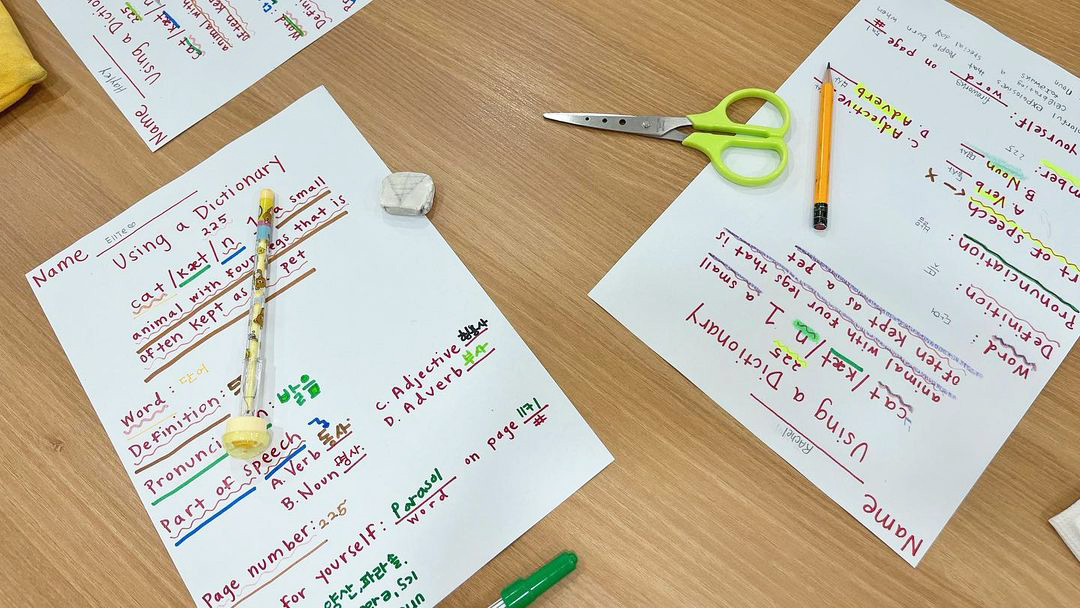 Name Ellie
Using a Dictionary
225
cat /kæt/ n 1 a small
animal with four legs that is
often kept as pet
Word: 단어
Definition:
발음
Part of Speech
A. Verb 동사
B. Noun 명사
C. Adjective 형용사
D. Adverb 부사
Page number: 225
for yourself: Parasol on page 1171
word #
양산, 파라솔,
Name Rachel
Using a Dictionary
225
cat /kæt/ n 1 a small
animal with four legs that is
often kept as a pet
Word:
Definition:
Pronunciation
Part of Speech
A. Verb
B. Noun
C. Adjective
D. Adverb
225
yourself: fireworks on page
word #
explosives that people burn when
celebrating a special day
Noun
Name Hayley
Using a Dictio
225
cat /kæt/ n
animal with
often kept
Word